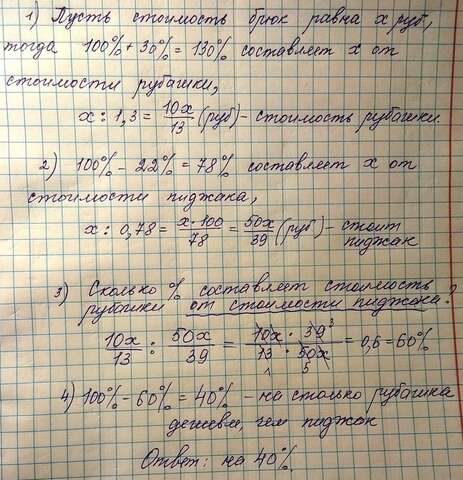 1) Пусть стоимость брюк равна х руб,
тогда 100% + 30% = 130% составляет х от
стоимости рубашки,
х : 1,3 = 10х/13 (руб) - стоимость рубашки.
2) 100% - 22% = 78% составляет х от
стоимости пиджака,
х : 0,78 = х·100/78 = 50х/39 (руб) - стоит
пиджак
3) Сколько % составляет стоимость
рубашки от стоимости пиджака?
10х/13 : 50х/39 = 10х · 39 3/13 · 50х = 0,6 = 60%
1 5
4) 100% - 60% = 40% - на столько рубашка
дешевле, чем пиджак
Ответ: на 40%.